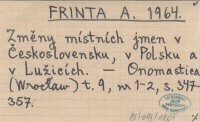 FRINTA A. 1964.
Změny místních jmen v
Československu, v Polsku a
v Lužicích. — Onomastica
(Wrocław) t. 9, nr 1-2, s. 347-
357.